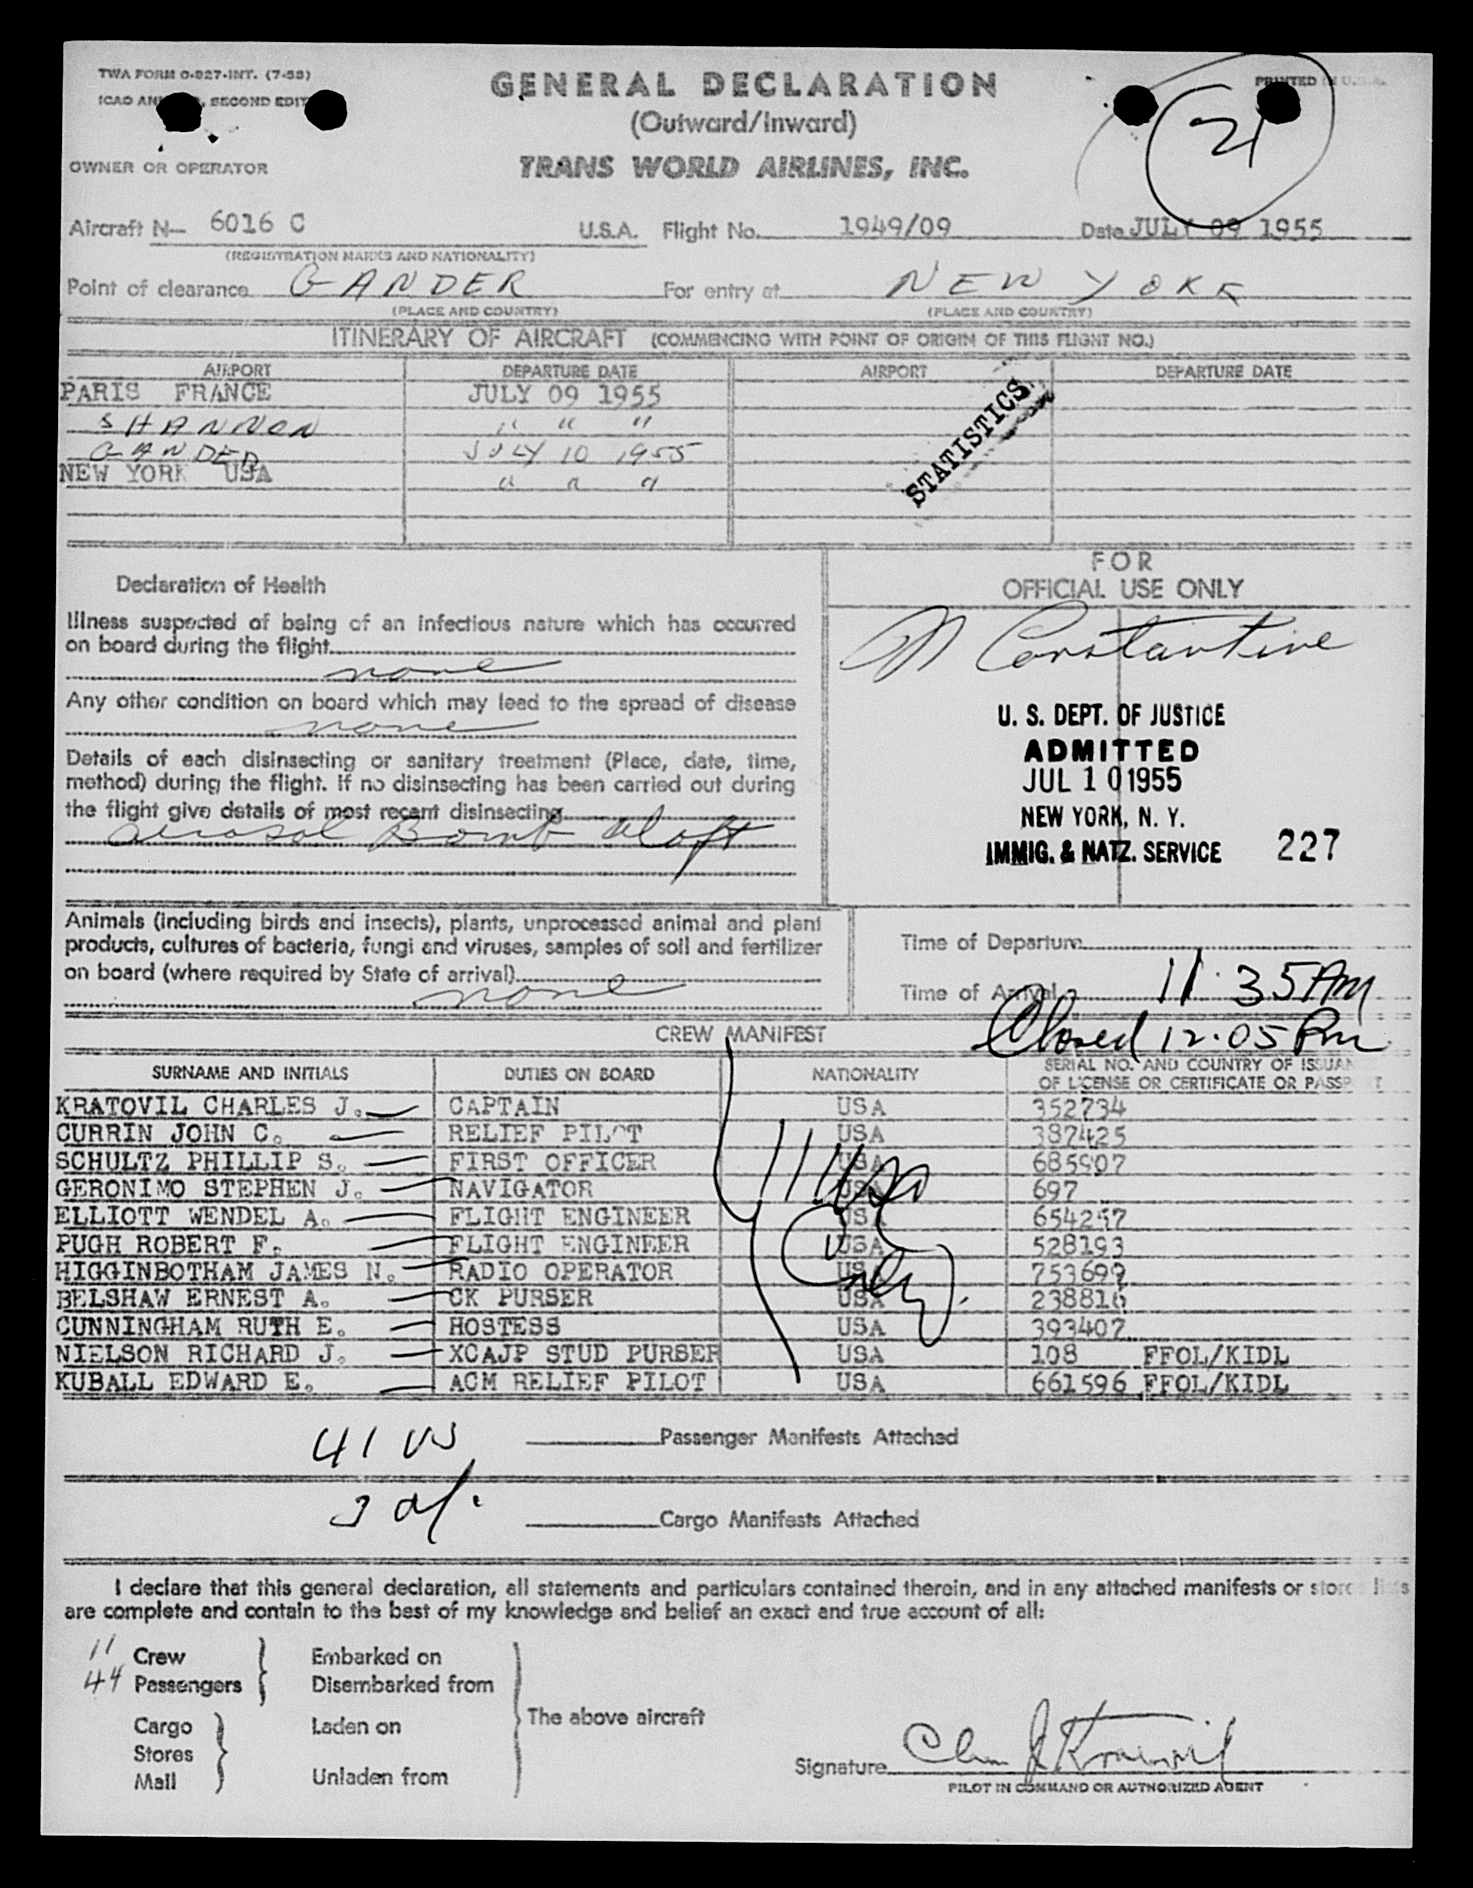 TWA FORM O-827-INT. (7-55)
GENERAL DECLARATION
PRINTED IN U.S.A.
SECOND EDIT
(Outward/Inward)
21
OWNER OR OPERATOR
TRANS WORLD AIRLINES, INC.
Aircraft N- 6016 C U.S.A. Flight No. 1949/09 Date JULY 09 1955
(REGISTRATION MARKS AND NATIONALITY)
Point of clearance GANDER For entry at NEW YORK
(PLACE AND COUNTRY) (PLACE AND COUNTRY)
ITINERARY OF AIRCRAFT (COMMENCING WITH POINT OF ORIGIN OF THIS FLIGHT NO.)
AIRPORT DEPARTURE DATE AIRPORT DEPARTURE DATE
PARIS FRANCE JULY 09 1955
SHANNON " " "
GANDER JULY 10 1955
NEW YORK USA " " "
STATISTICS
FOR
OFFICIAL USE ONLY
Declaration of Health
Illness suspected of being of an infectious nature which has occurred
on board during the flight
none
M Constantine
Any other condition on board which may lead to the spread of disease
none
U. S. DEPT. OF JUSTICE
ADMITTED
JUL 10 1955
NEW YORK, N. Y.
IMMIG. & NATZ. SERVICE 227
Details of each disinsecting or sanitary treatment (Place, date, time,
method) during the flight. If no disinsecting has been carried out during
the flight give details of most recent disinsecting
aerosol Bomb aloft
Animals (including birds and insects), plants, unprocessed animal and plant
products, cultures of bacteria, fungi and viruses, samples of soil and fertilizer
on board (where required by State of arrival)
none
Time of Departure
Time of Arrival 11:35 AM
Closed 12:05 Pm
CREW MANIFEST
SURNAME AND INITIALS DUTIES ON BOARD NATIONALITY SERIAL NO. AND COUNTRY OF ISSUANCE
OF LICENSE OR CERTIFICATE OR PASSPORT
KRATOVIL CHARLES J. CAPTAIN USA 352734
CURRIN JOHN C. RELIEF PILOT USA 387425
SCHULTZ PHILLIP S. FIRST OFFICER USA 685907
GERONIMO STEPHEN J. NAVIGATOR USA 697
ELLIOTT WENDEL A. FLIGHT ENGINEER USA 654257
PUGH ROBERT F. FLIGHT ENGINEER USA 528193
HIGGINBOTHAM JAMES N. RADIO OPERATOR USA 753699
BELSHAW ERNEST A. CK PURSER USA 238816
CUNNINGHAM RUTH E. HOSTESS USA 393407
NIELSON RICHARD J. XCAJP STUD PURSER USA 108 FFOL/KIDL
KUBALL EDWARD E. ACM RELIEF PILOT USA 661596 FFOL/KIDL
41 US Passenger Manifests Attached
3 al. Cargo Manifests Attached
I declare that this general declaration, all statements and particulars contained therein, and in any attached manifests or stores lists
are complete and contain to the best of my knowledge and belief an exact and true account of all:
11 Crew Embarked on
44 Passengers Disembarked from
The above aircraft
Cargo Laden on
Stores
Mail Unladen from
Signature Chas J Kratovil
PILOT IN COMMAND OR AUTHORIZED AGENT